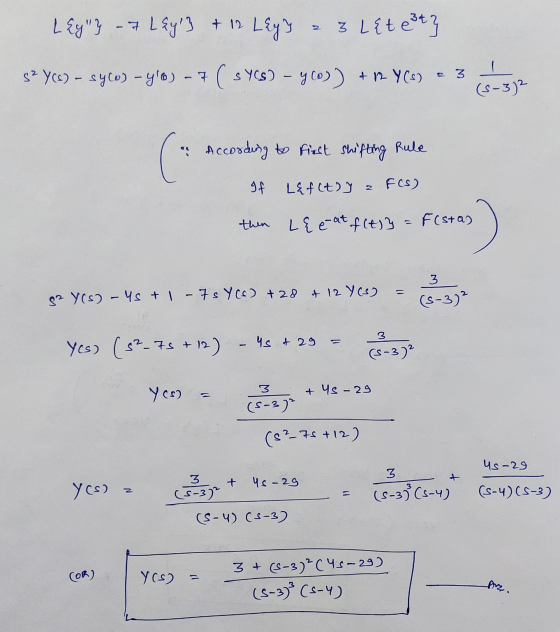 L{y"} - 7 L{y'} + 12 L{y} = 3 L{t e^{3t}}
s² Y(s) - sy(0) - y'(0) - 7 ( s Y(s) - y(0) ) + 12 Y(s) = 3 1/(s-3)²
( ∵ According to First shifting Rule
If L{f(t)} = F(s)
then L{ e^{-at} f(t)} = F(s+a) )
s² Y(s) - 4s + 1 - 7s Y(s) + 28 + 12 Y(s) = 3/(s-3)²
Y(s) ( s² - 7s + 12 ) - 4s + 29 = 3/(s-3)²
Y(s) = (3/(s-3)² + 4s - 29)/(s² - 7s + 12)
Y(s) = (3/(s-3)² + 4s - 29)/((s-4) (s-3)) = 3/((s-3)³ (s-4)) + (4s-29)/((s-4) (s-3))
(OR) Y(s) = (3 + (s-3)² (4s-29))/((s-3)³ (s-4)) — Ans.